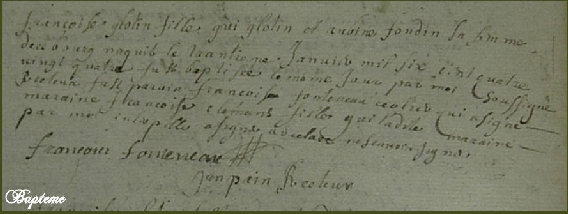 francoise glotin fille gui glotin et antoine fondin sa femme
de ce bourg naquit le trantieme Januier mil six cent quatre
vingt quatre fust baptisée le meme jour par moi soussigné
Recteur fust parain francois fonteneau ecolier qui a signé
maraine francoise clemans fille qui ladite maraine
par moi interpellé a signé a declaré ne scavoir signer
francois fonteneau
Jan pain Recteur
Bapteme